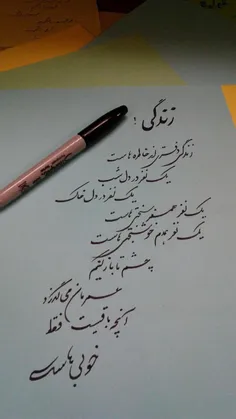 زندگی !
زندگی دفتری از خاطره هاست
یک نفر در دل شب
یک نفر در دل خاک
یک نفر همسفر سختی هاست
یک نفر همدم خوشبختی هاست
چشم تا باز کنیم
عمرمان می گذرد
آنچه باقیست فقط
خوبی هاست